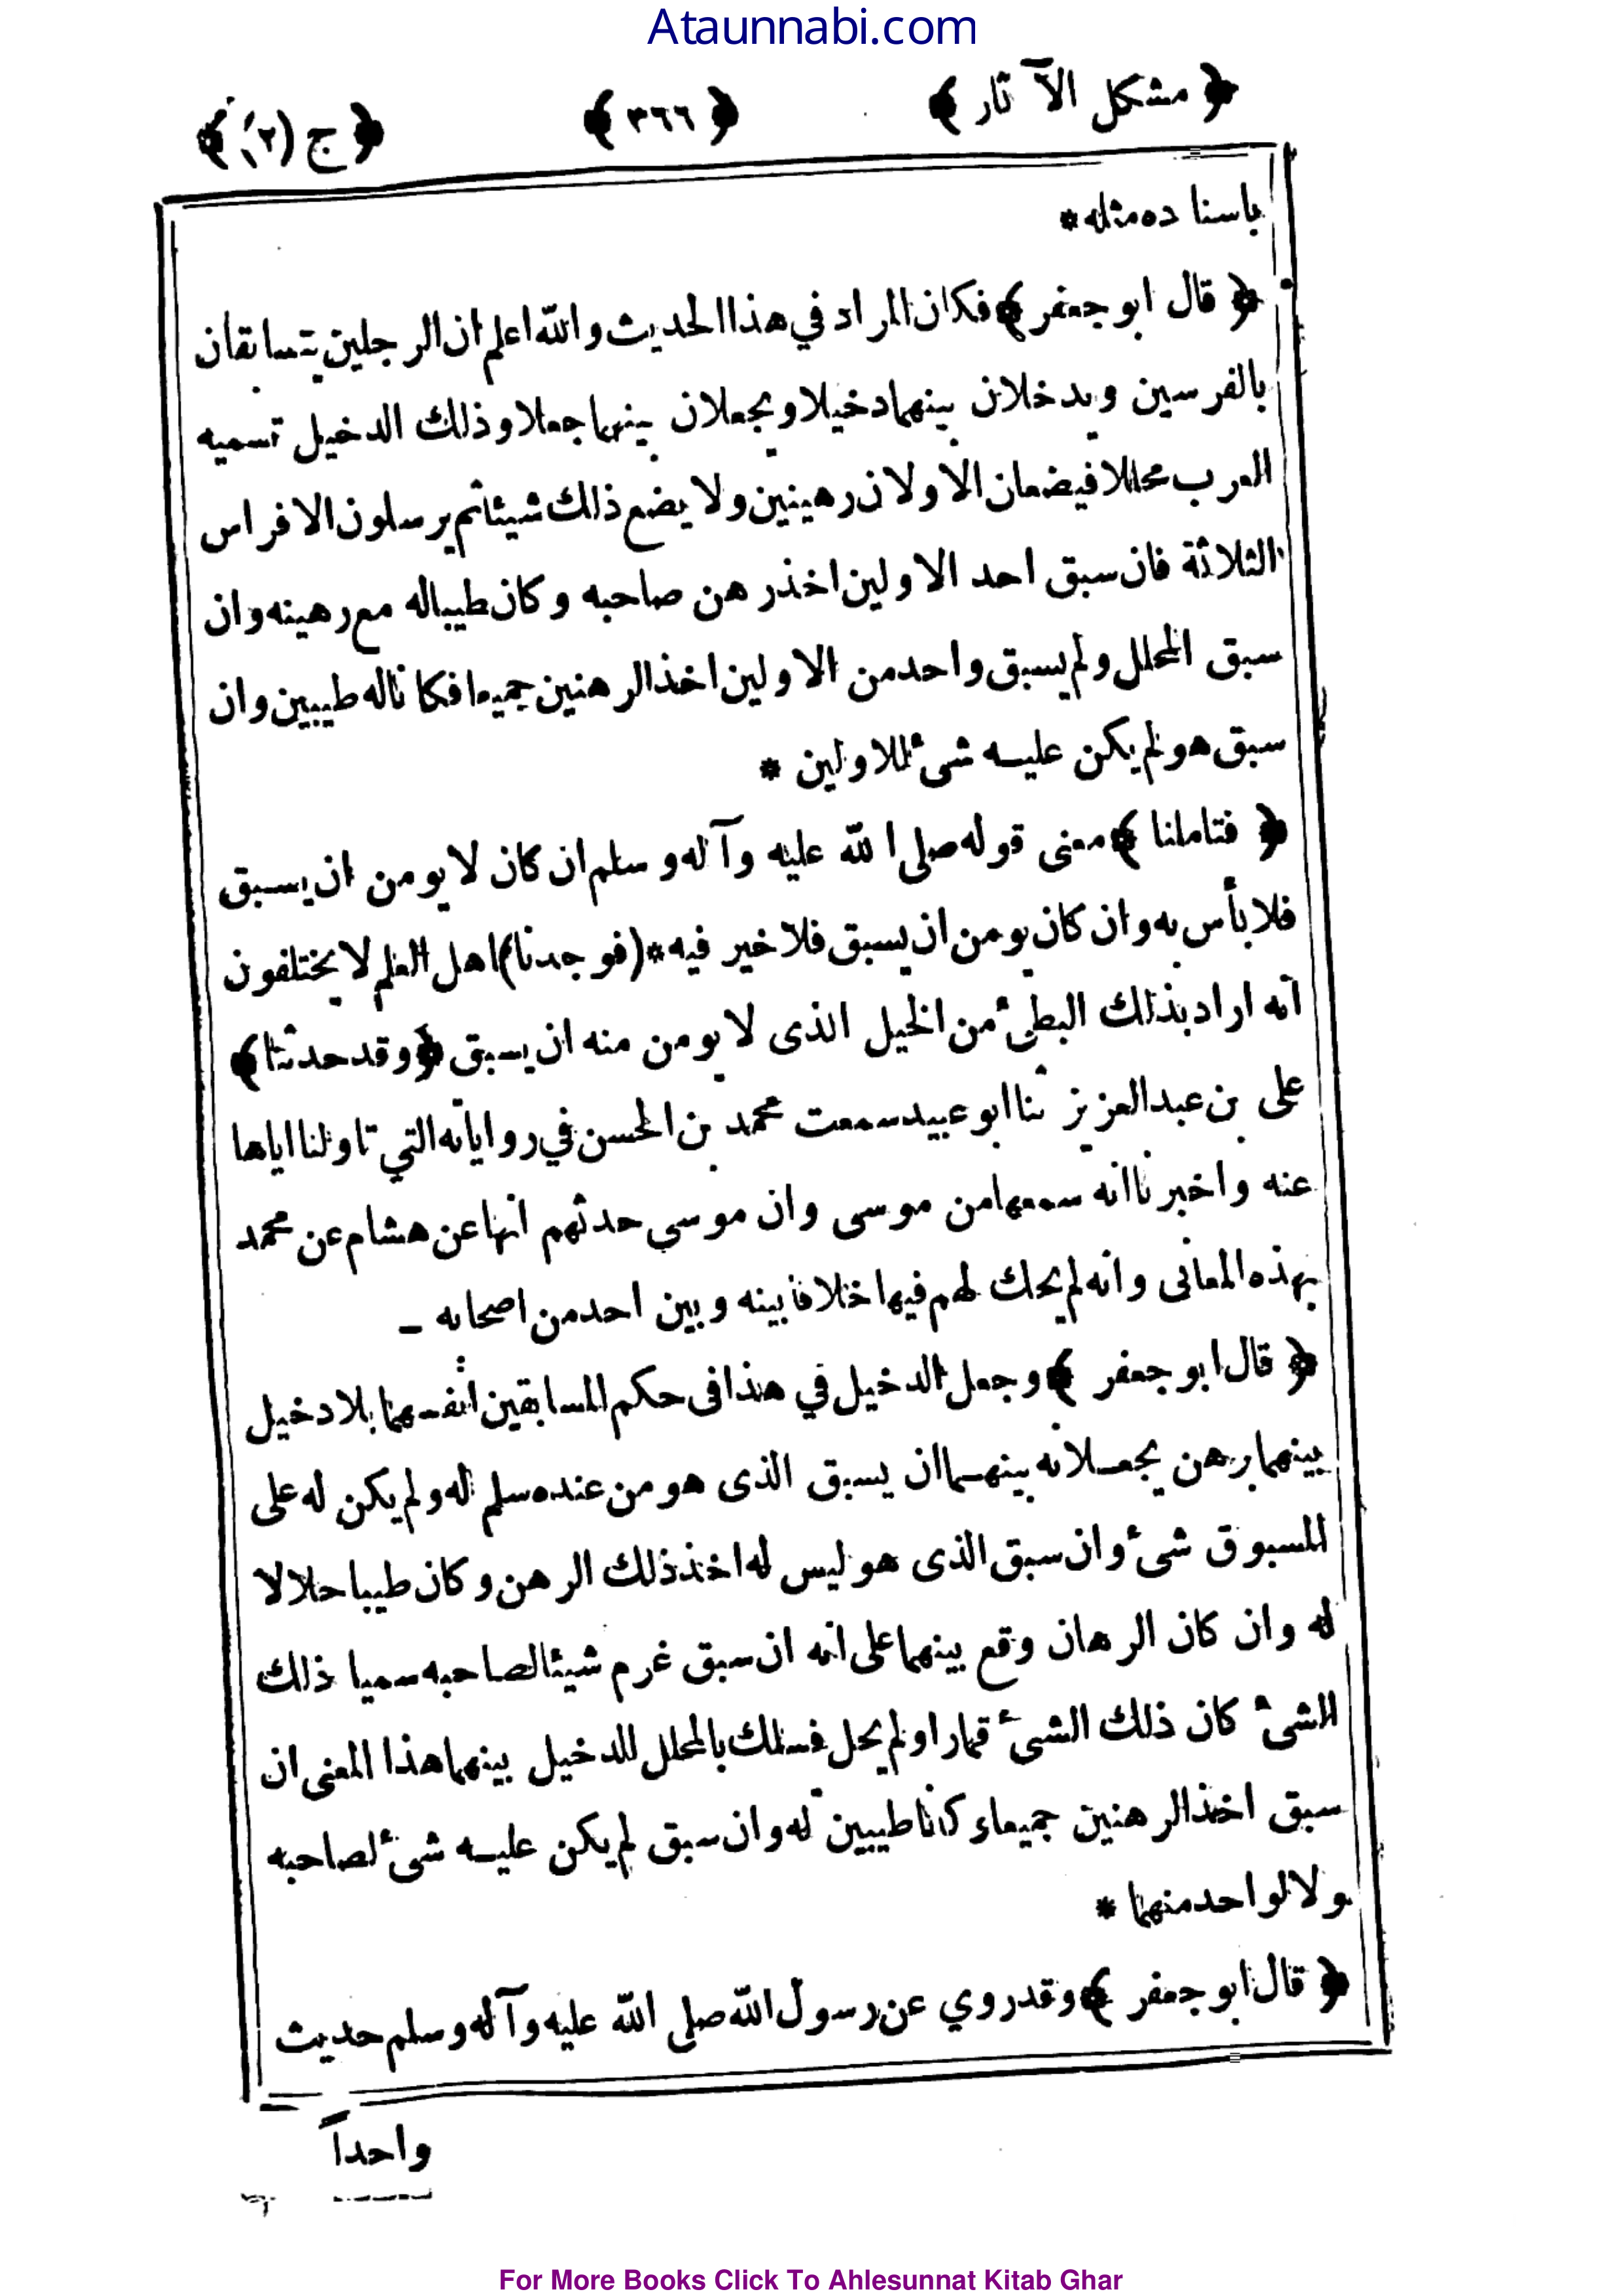 Ataunnabi.com
﴿ مشكل الآثار ﴾ ﴿ ٣٦٦ ﴾ ﴿ ج (٢) ﴾
باسناده مثله *
﴿ قال ابو جعفر ﴾ فكان المراد في هذا الحديث والله اعلم ان الرجلين يتسابقان
بالفرسين ويدخلان بينهما دخيلا ويجعلان بينهما جعلا وذلك الدخيل تسميه
العرب محللا فيضعان الاولان رهينين ولا يضع ذلك شيئا ثم يرسلون الافراس
الثلاثة فان سبق احد الاولين اخذ رهن صاحبه وكان طيبا له مع رهينه وان
سبق المحلل ولم يسبق واحد من الاولين اخذ الرهنين جميعا فكانا له طيبين وان
سبق هو لم يكن عليه شئ للاولين *
﴿ فتاملنا ﴾ معنى قوله صلى الله عليه وآله وسلم ان كان لا يومن ان يسبق
فلا بأس به وان كان يومن ان يسبق فلا خير فيه * (فوجدنا) اهل العلم لا يختلفون
انه اراد بذلك البطئ من الخيل الذى لا يومن منه ان يسبق ﴿ وقد حدثنا ﴾
على بن عبد العزيز ثنا ابو عبيد سمعت محمد بن الحسن في رواياته التي تاولنا اياها
عنه واخبرنا انه سمعها من موسى وان موسى حدثهم انها عن هشام عن محمد
بهذه المعانى وانه لم يحك لهم فيها خلافا بينه وبين احد من اصحابه ـ
﴿ قال ابو جعفر ﴾ وجعل الدخيل في هذا فى حكم المسابقين انفسهما بلا دخيل
بينهما برهن يجعلانه بينهما ان يسبق الذى هو من عنده سلم له ولم يكن له على
المسبوق شئ وان سبق الذى هو ليس له اخذ ذلك الرهن وكان طيبا حلالا
له وان كان الرهان وقع بينهما على انه ان سبق غرم شيئا لصاحبه سميا ذلك
الشئ كان ذلك الشئ قمارا ولم يحل فسلك بالمحلل للدخيل بينهما هذا المعنى ان
سبق اخذ الرهنين جميعاء كانا طيبين له وان سبق لم يكن عليه شئ لصاحبه
ولا لواحد منهما *
﴿ قال ابو جعفر ﴾ وقد روي عن رسول الله صلى الله عليه وآله وسلم حديث
واحداً
For More Books Click To Ahlesunnat Kitab Ghar